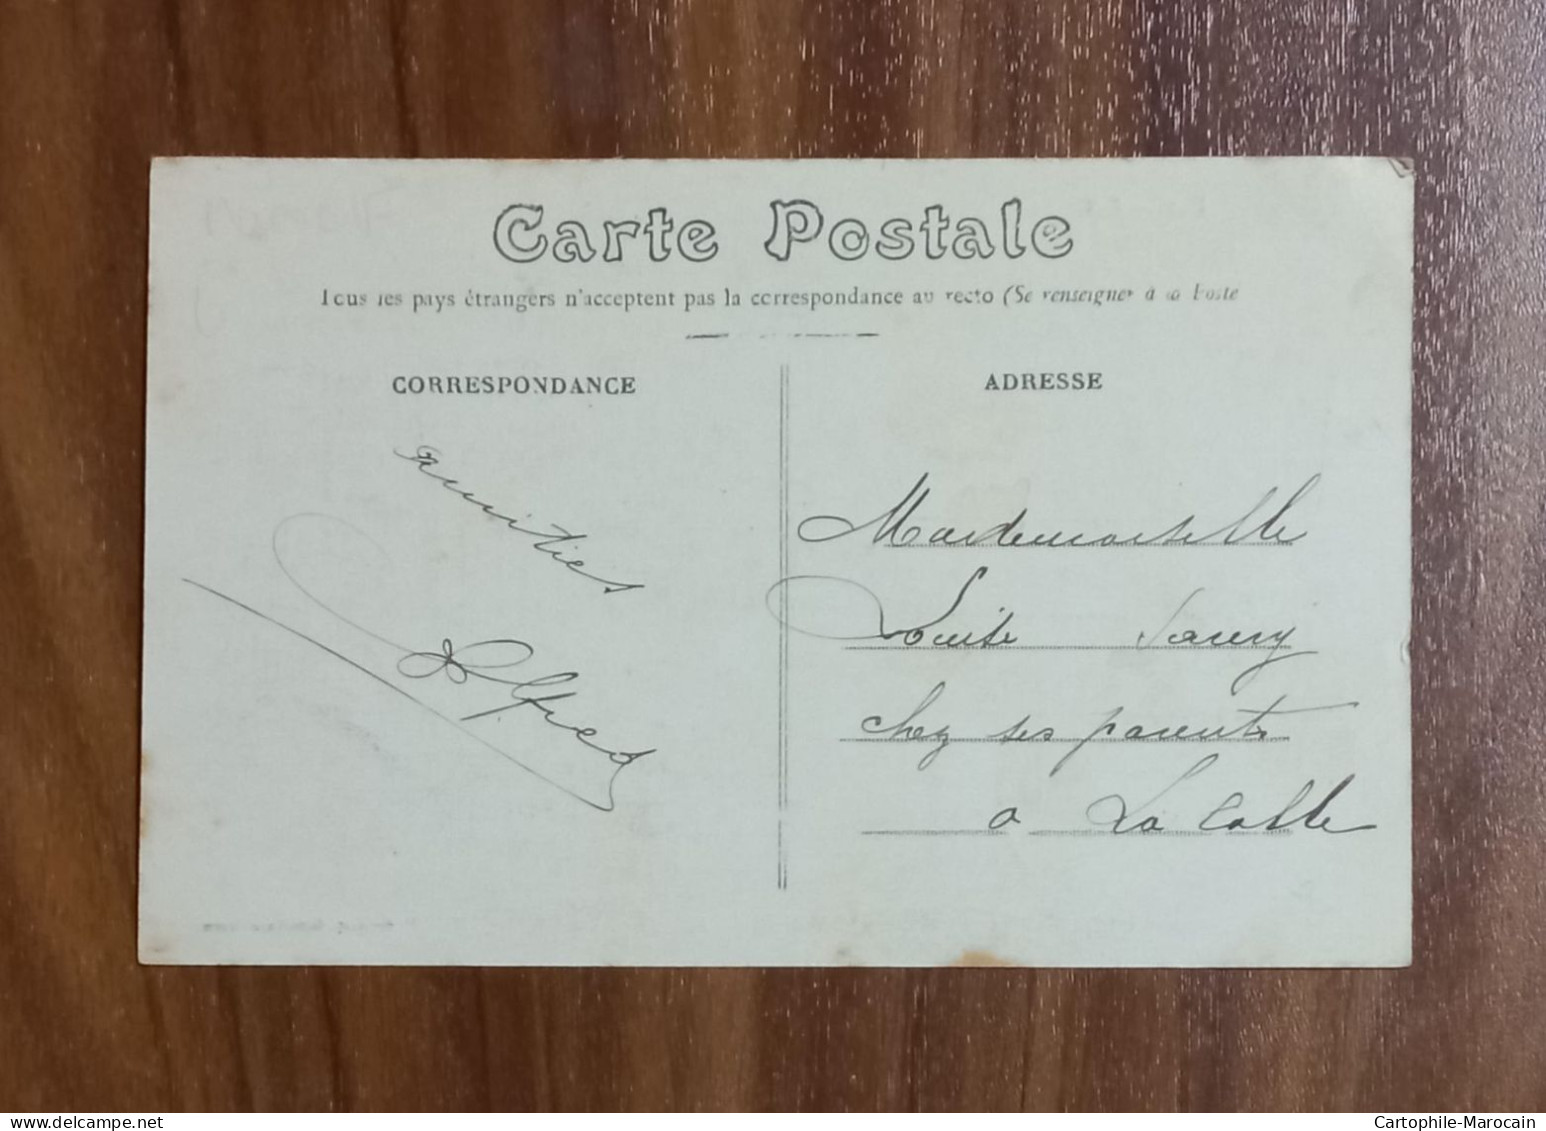 Carte Postale
Tous les pays étrangers n'acceptent pas la correspondance au recto (Se renseigner à la Poste
CORRESPONDANCE
ADRESSE
amitiés
Alfred
Mademoiselle
Louise
chez ses parents
a La Calle
www.delcampe.net
Cartophile-Marocain